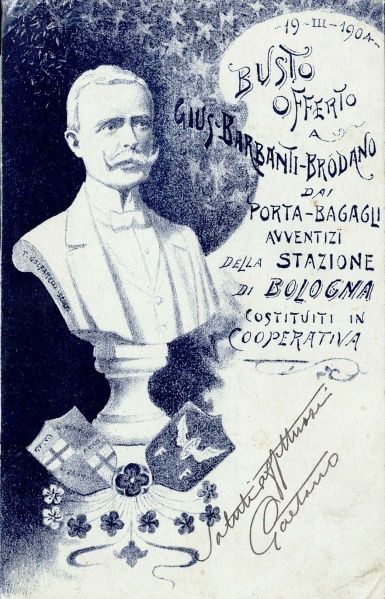 19-III-1904
BUSTO
OFFERTO
A
GIUS. BARBANTI-BRÒDANO
DAI
PORTA-BAGAGLI
AVVENTIZÏ
DELLA STAZIONE
DI BOLOGNA
COSTITUITI IN
COOPERATIVA
Saluti affettuosi
Gaetano